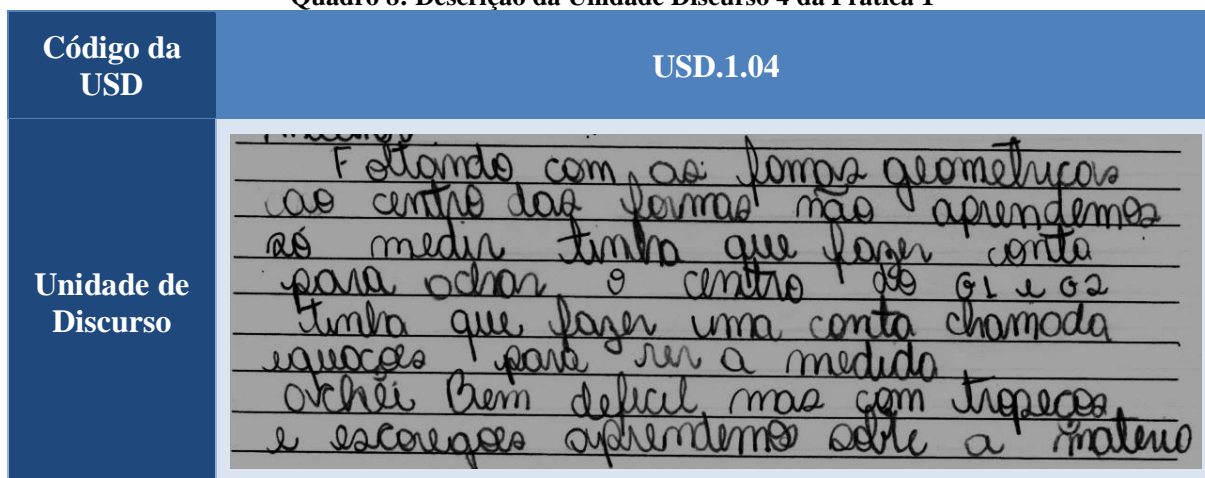 Quadro 8: Descrição da Unidade Discurso 4 da Prática 1
Código da
USD
USD.1.04
Unidade de
Discurso
Foltando com as fomas geometricas
ao centro das formas não aprendemos
só medir tinha que fazer conta
para achar o centro do G1 e G2
tinha que fazer uma conta chamada
equações para ver a medida
achei Bem deficil, mas com tropeços
e escoregões aprendemos sobre a materia